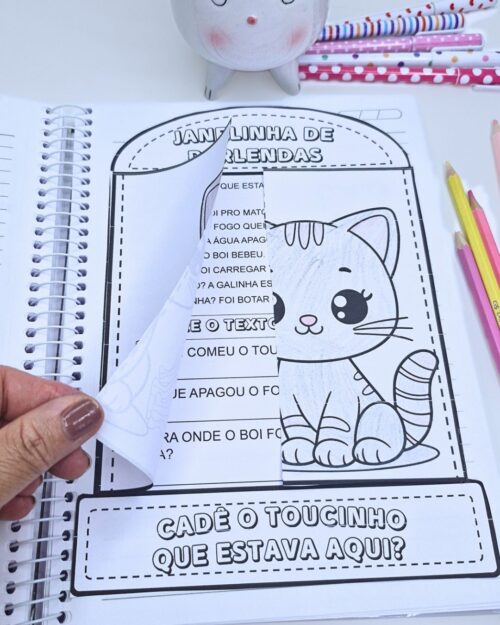 JANELINHA DE
PARLENDAS
QUE ESTA
OI PRO MATO
FOGO QUE
A ÁGUA APAG
O BOI BEBEU
OI CARREGAR
O? A GALINHA ES
NHA? FOI BOTAR
E O TEXTO
COMEU O TOU
UE APAGOU O FO
RA ONDE O BOI FO
A?
CADÊ O TOUCINHO
QUE ESTAVA AQUI?